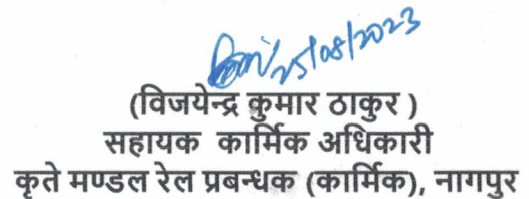 25/08/2023
(विजयेन्द्र कुमार ठाकुर )
सहायक कार्मिक अधिकारी
कृते मण्डल रेल प्रबन्धक (कार्मिक), नागपुर